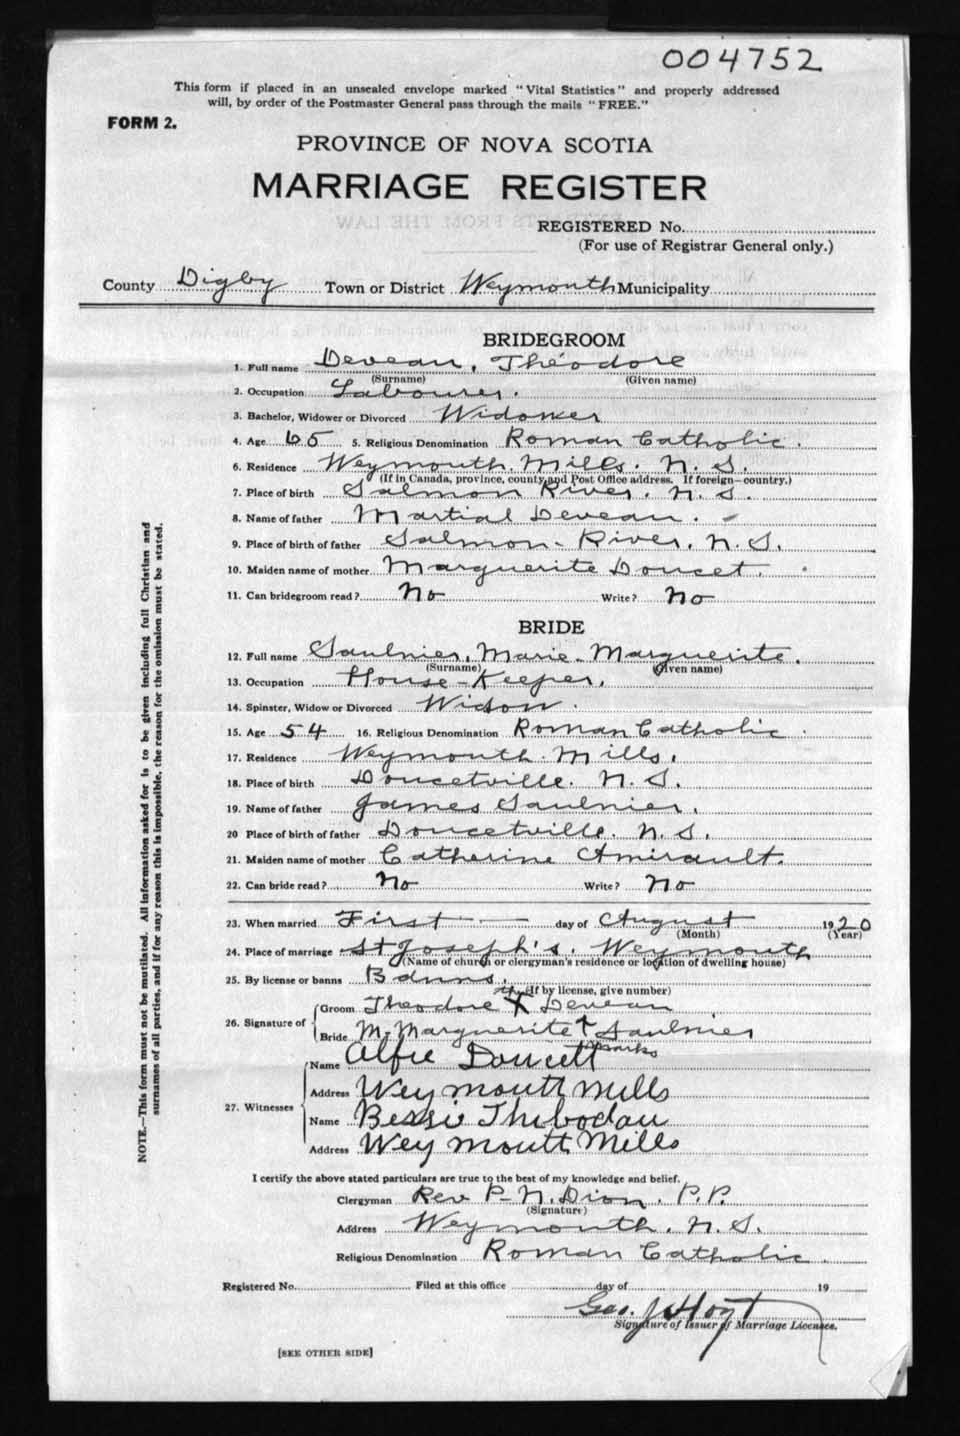 004752
This form if placed in an unsealed envelope marked "Vital Statistics" and properly addressed
will, by order of the Postmaster General pass through the mails "FREE."
FORM 2.
PROVINCE OF NOVA SCOTIA
MARRIAGE REGISTER
REGISTERED No.
(For use of Registrar General only.)
County Digby Town or District Weymouth Municipality
BRIDEGROOM
1. Full name Deveau, Théodore
(Surname) (Given name)
2. Occupation Labourer.
3. Bachelor, Widower or Divorced Widower
4. Age 65 5. Religious Denomination Roman Catholic.
6. Residence Weymouth Mills. N. S.
(If in Canada, province, county and Post Office address. If foreign—country.)
7. Place of birth Salmon River. N. S.
8. Name of father Martial Deveau.
9. Place of birth of father Salmon-River. N. S.
10. Maiden name of mother Marguerite Doucet.
11. Can bridegroom read? No Write? No
BRIDE
12. Full name Saulnier, Marie-Marguerite.
(Surname) (Given name)
13. Occupation House-Keeper.
14. Spinster, Widow or Divorced Widow.
15. Age 54 16. Religious Denomination Roman Catholic.
17. Residence Weymouth Mills.
18. Place of birth Doucetville. N. S.
19. Name of father James Saulnier.
20 Place of birth of father Doucetville. N. S.
21. Maiden name of mother Catherine Amirault.
22. Can bride read? No Write? No
23. When married First day of August 1920
(Month) (Year)
24. Place of marriage St Joseph's. Weymouth
(Name of church or clergyman's residence or location of dwelling house)
25. By license or banns Banns.
(If by license, give number)
26. Signature of Groom Theodore their X Deveau
Bride M. Marguerite + Saulnier
marks
27. Witnesses Name Alfie Doucett
Address Weymoutt Mills
Name Bessie Thibodau
Address Weymoutt Mills
I certify the above stated particulars are true to the best of my knowledge and belief.
Clergyman Rev P-N. Dion. P.P.
(Signature)
Address Weymouth. N. S.
Religious Denomination Roman Catholic.
Registered No. Filed at this office day of 19
Geo. J Hoyt
Signature of Issuer of Marriage Licenses.
[SEE OTHER SIDE]
NOTE.—This form must not be mutilated. All information asked for is to be given including full Christian and
surnames of all parties, and if for any reason this is impossible, the reason for the omission must be stated.